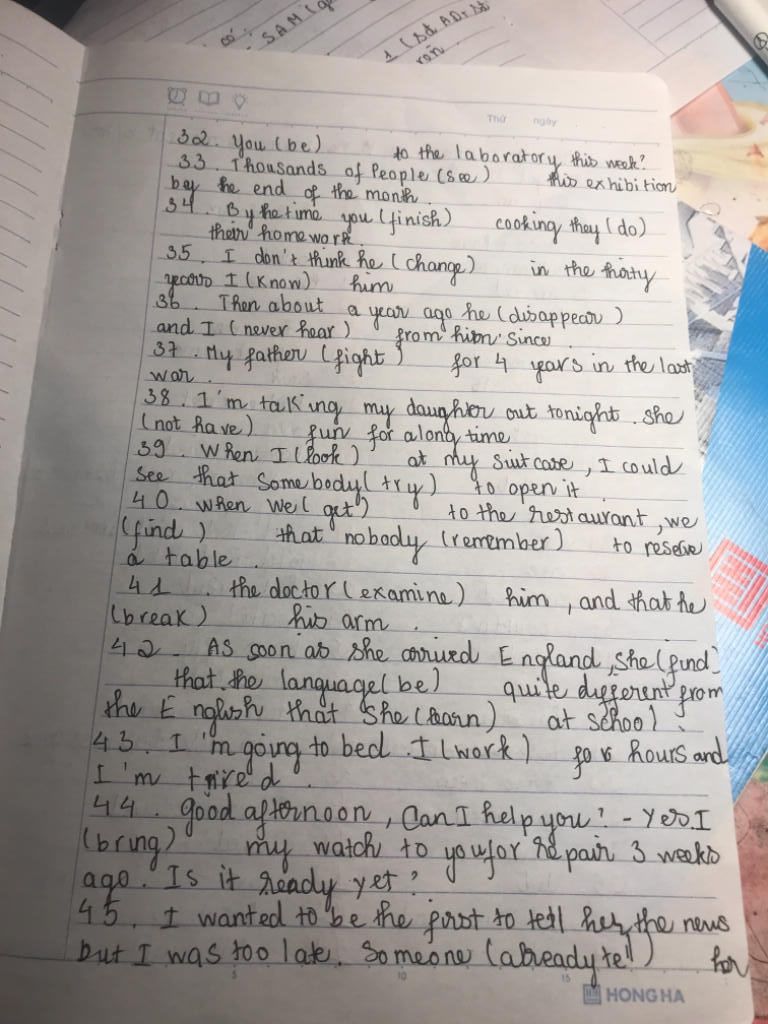 có:
SAM (
1 (
Thứ ngày
32. You (be) to the laboratory this week?
33. Thousands of People (see) this exhibition
bey the end of the month.
34. By the time you (finish) cooking they (do)
their homework.
35. I don't think he (change) in the thirty
years I (know) him
36. Then about a year ago he (disappear)
and I (never hear) from him since.
37. My father (fight) for 4 years in the last
war.
38. I'm taking my daughter out tonight. she
(not have) fun for a long time
39. When I (look) at my suitcase, I could
see that somebody (try) to open it.
40. When we (get) to the restaurant, we
(find) that nobody (remember) to reserve
a table.
41. the doctor (examine) him, and that he
(break) his arm.
42. As soon as she arrived England, she (find)
that the language (be) quite different from
the English that she (learn) at school.
43. I'm going to bed. I (work) for hours and
I'm tired.
44. good afternoon, Can I help you? - Yes. I
(bring) my watch to you for repair 3 weeks
ago. Is it ready yet?
45. I wanted to be the first to tell her the news
but I was too late. Someone (already tell) her
5 10 15
HONG HA